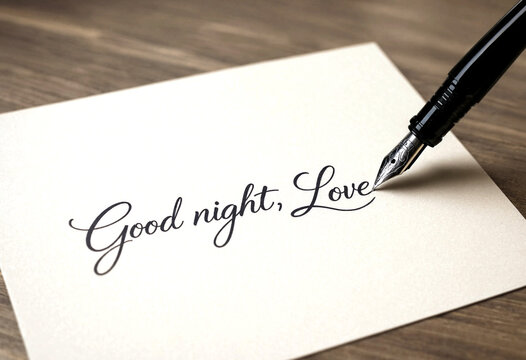 Good night, Love